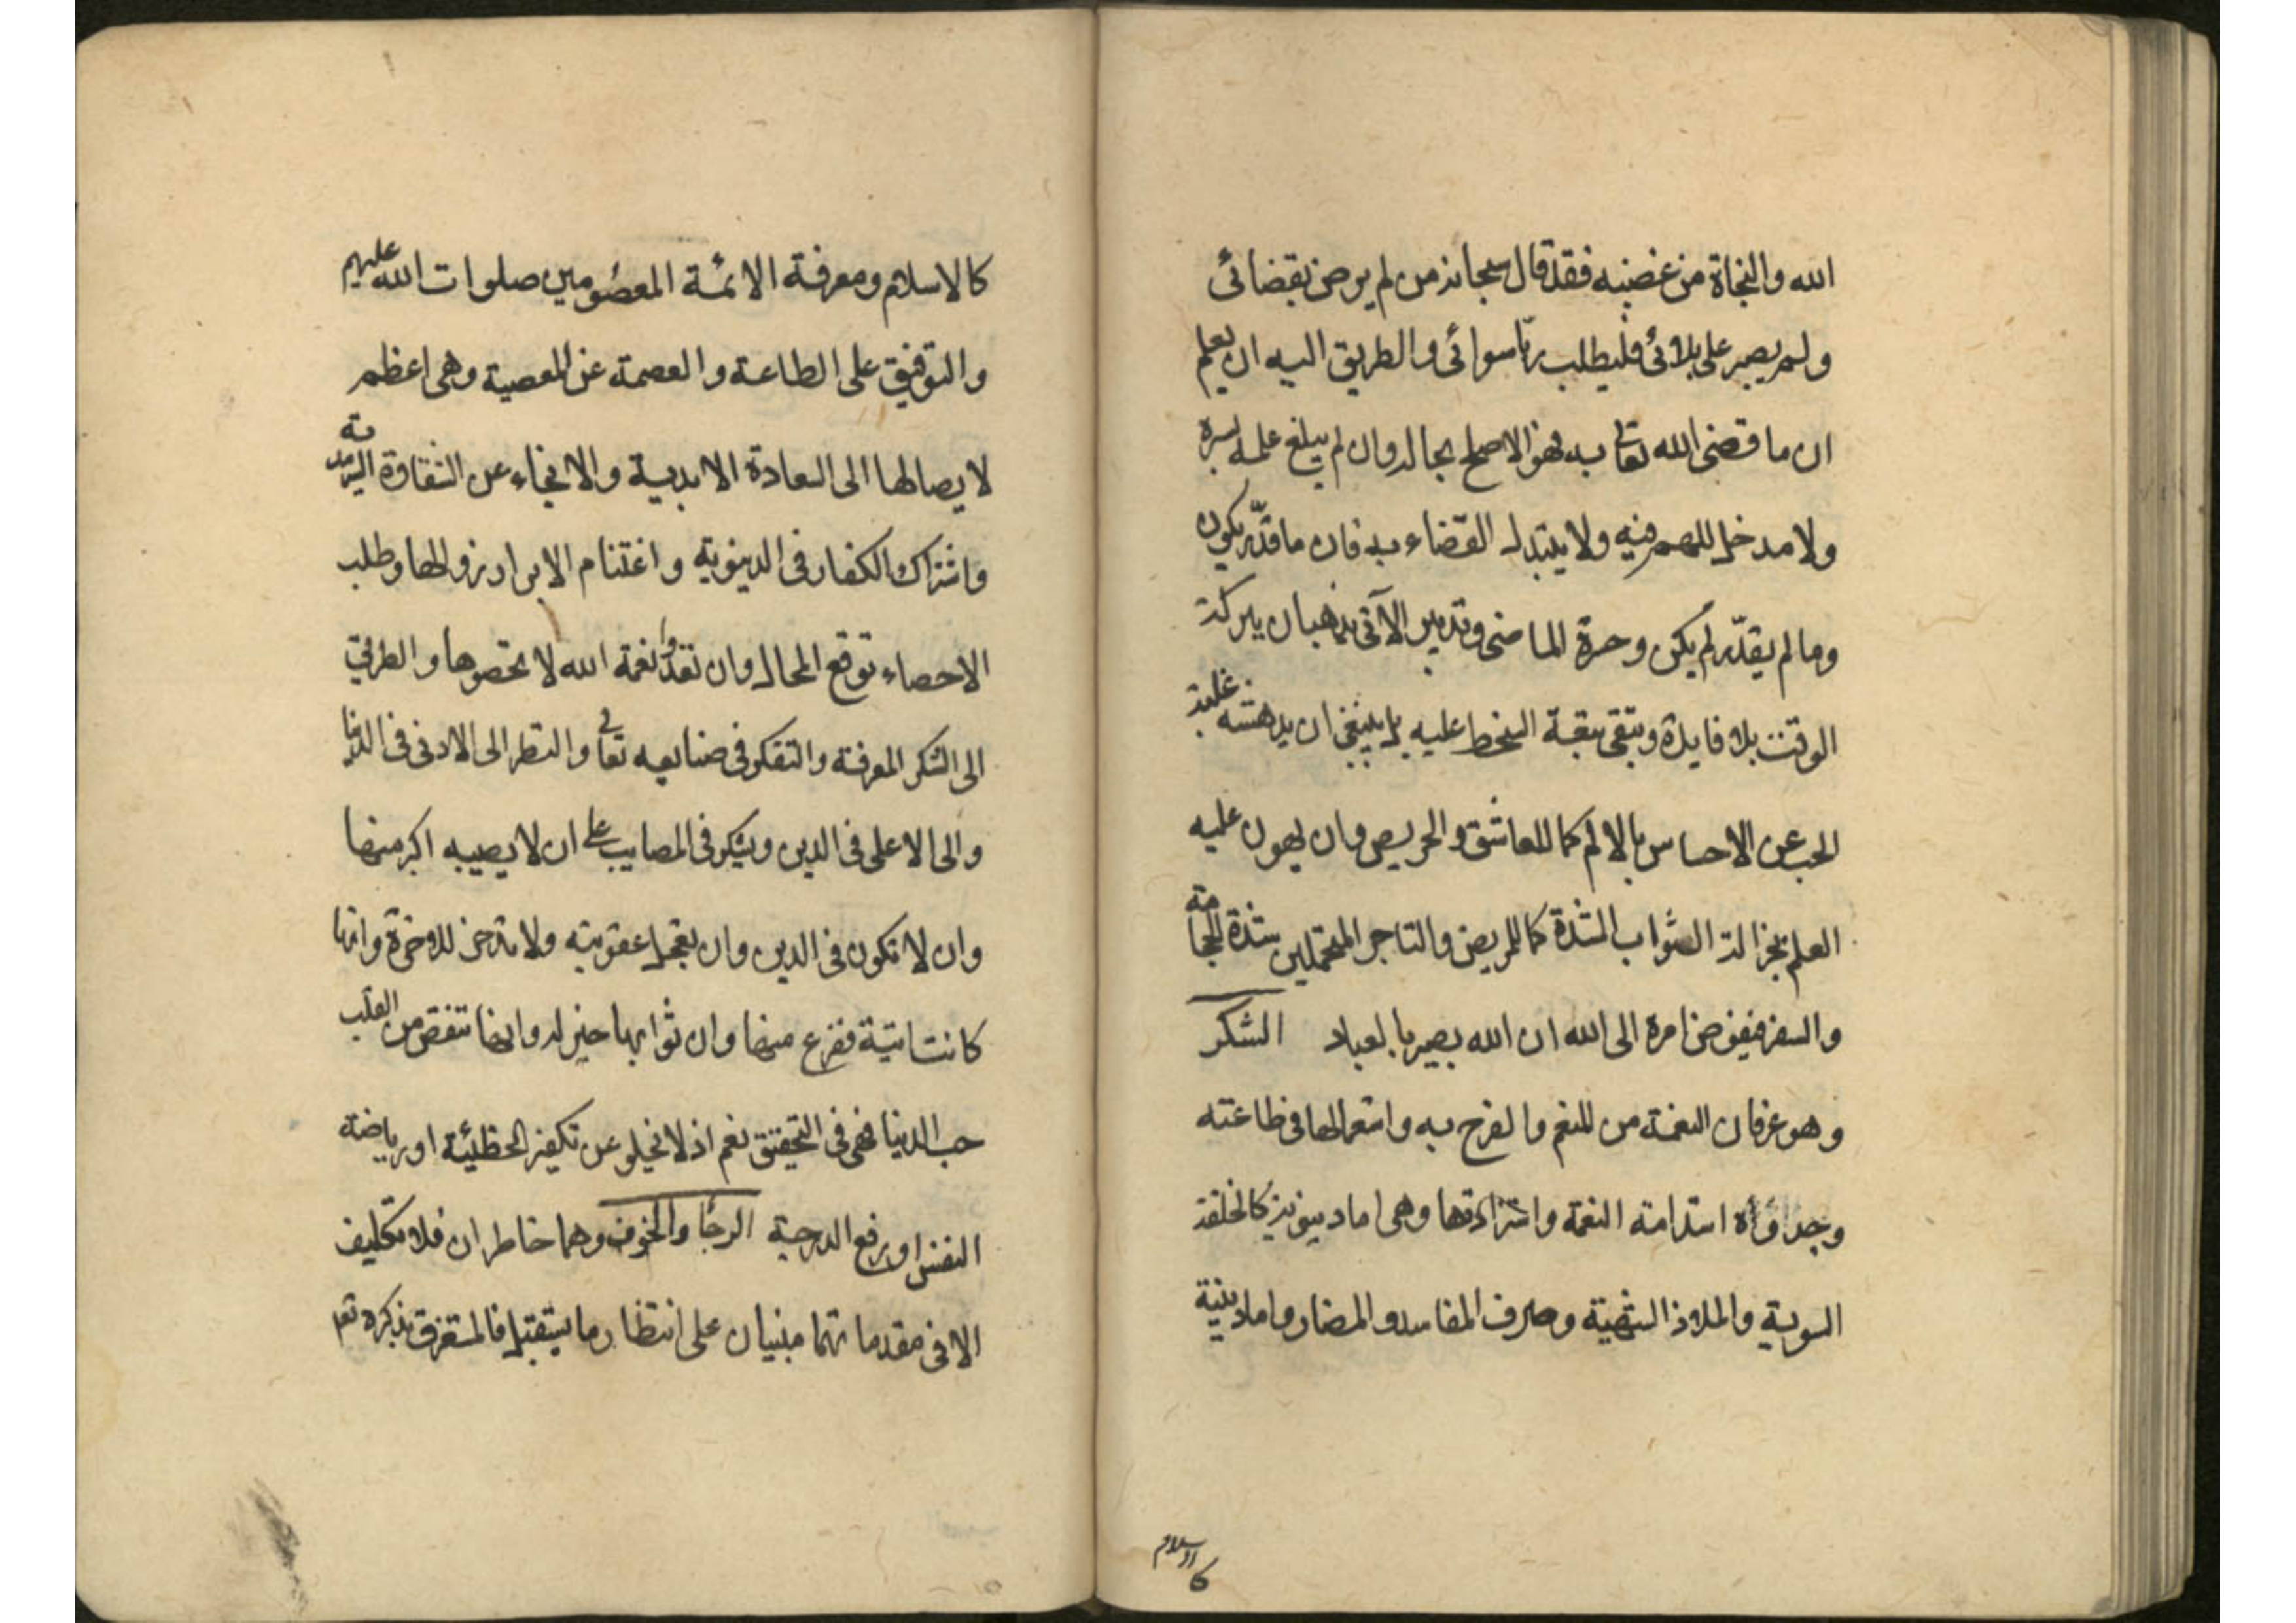 الله والنجاة من غضبه فقد قال سبحانه من لم يرض بقضائى
ولم يصبر على بلائى فليطلب ربّا سوائى والطريق اليه ان يعلم
ان ما قضى الله تعالى به فهو الاصلح بحاله وان لم يبلغ علمه بسره
ولا مدخل للهم فيه ولا يتبدل القضاء به فان ما قدّر يكون
وما لم يقدّر لم يكن وحسرة الماضى وتدبير الآتى يذهبان ببركة
الوقت بلا فايدة وتبقى تبعة السخط عليه بل ينبغى ان يدهشه غلبة
الحب عن الاحساس بالالم كما للعاشق والحريص وان يهون عليه
العلم بجزالة الثواب الشدة كما للمريض والتاجر المتحملين شدة الحجامة
والسفر فيفوض امره الى الله ان الله بصير بالعباد الشكر
وهو عرفان النعمة من المنعم والفرح به واستعمالها فى طاعته
وجدواه استدامة النعمة واستزادتها وهى اما دنيوية كالخلقة
السوية والملاذ الشهية وصرف المفاسد والمضار واما دينية
كالاسلام
كالاسلام ومعرفة الائمة المعصومين صلوات الله عليهم
والتوفيق على الطاعة والعصمة عن المعصية وهى اعظم
لايصالها الى السعادة الابدية والانجاء عن الشقاوة السرمدية
واشتراك الكفار فى الدنيوية واغتنام الابرار بزوالها وطلب
الاحصاء توقع المحال وان تعدوا نعمة الله لا تحصوها والطريق
الى الشكر المعرفة والتفكر فى صنايعه تعالى والنظر الى الادنى فى الدنيا
والى الاعلى فى الدين ويشكر فى المصايب على ان لا يصيبه اكبر منها
وان لا تكون فى الدين وان يعجل عقوبته ولا يدخر للاخرة وانها
كانت اتية ففرغ منها وان ثوابها خير له وانها تنقص من القلب
حب الدنيا فهى فى التحقيق نعم اذ لا تخلو عن تكفير الخطيئة او رياضة
النفس او رفع الدرجة الرجا والخوف وهما خاطران فلا تكليف
الا فى مقدماتهما مبنيان على انتظار ما يستقبل فالمستغرق بذكره تعـ